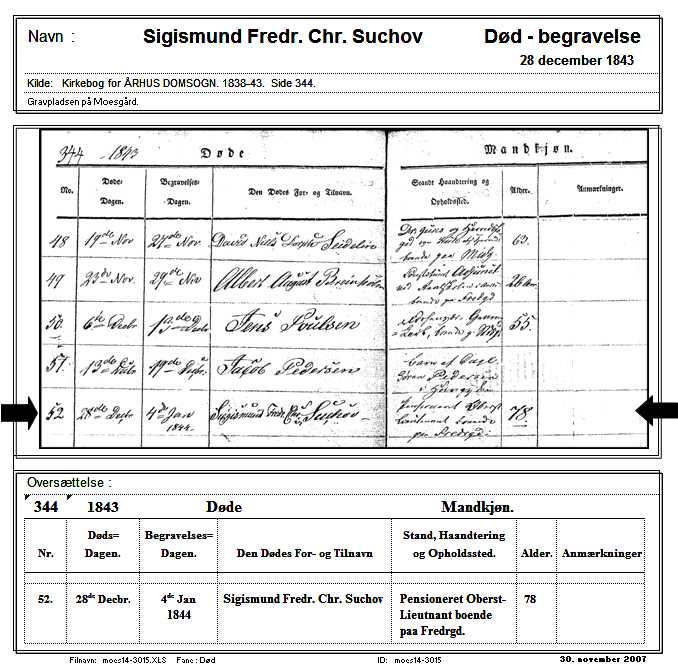 Navn : Sigismund Fredr. Chr. Suchov Død - begravelse
28 december 1843
Kilde: Kirkebog for ÅRHUS DOMSOGN. 1838-43. Side 344.
Gravpladsen på Moesgård.
344 1843 Døde Mandkjøn.
No. Døds-Dagen. Begravelses-Dagen. Den Dødes For- og Tilnavn. Stand, Haandtering og Opholdssted. Alder. Anmærkninger.
48 19de Nov 24de Nov 63.
49 23de Nov 29de Nov Albert August
50. 6te Decbr 13de Decbr Jens Poulsen 55.
51. 13de Decbr 19de Decbr. Jacob Pedersen
52 28de Decbr 4de Jan 1844. Sigismund Fredr. Chr. Suchov 78.
Oversættelse :
344 1843 Døde Mandkjøn.
Døds= Begravelses= Stand, Haandtering
Nr. Dagen. Dagen. Den Dødes For- og Tilnavn og Opholdssted. Alder. Anmærkninger
52. 28de Decbr. 4de Jan Sigismund Fredr. Chr. Suchov Pensioneret Oberst- 78
1844 Lieutnant boende
paa Fredrgd.
Filnavn: moes14-3015.XLS Fane : Død ID: moes14-3015 30. november 2007